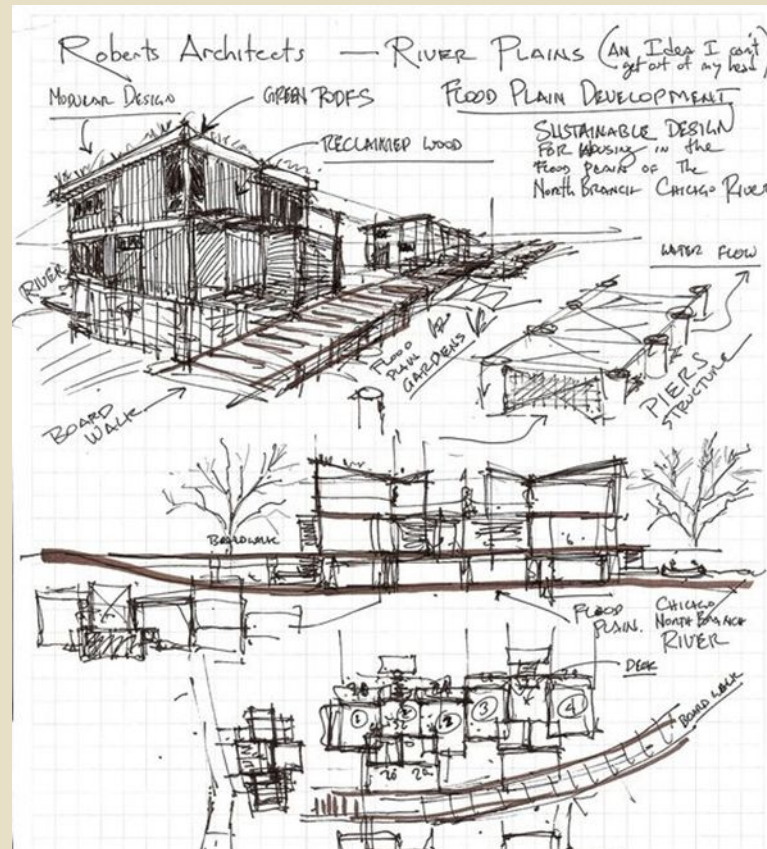 Roberts Architects — RIVER PLAINS (AN Idea I can't
get out of my head)
MODULAR DESIGN
GREEN ROOFS
FLOOD PLAIN DEVELOPMENT
RECLAIMED WOOD
SUSTAINABLE DESIGN
FOR HOUSING in the
FLOOD PLAIN OF The
NORTH BRANCH CHICAGO RIVER
RIVER
WATER FLOW
FLOOD
PLAIN
GARDENS
PIERS
STRUCTURE
BOARD
WALK
BOARDWALK
FLOOD
PLAIN.
CHICAGO
NORTH BRANCH
RIVER
DECK
1
2
3
4
20
20
BOARD WALK